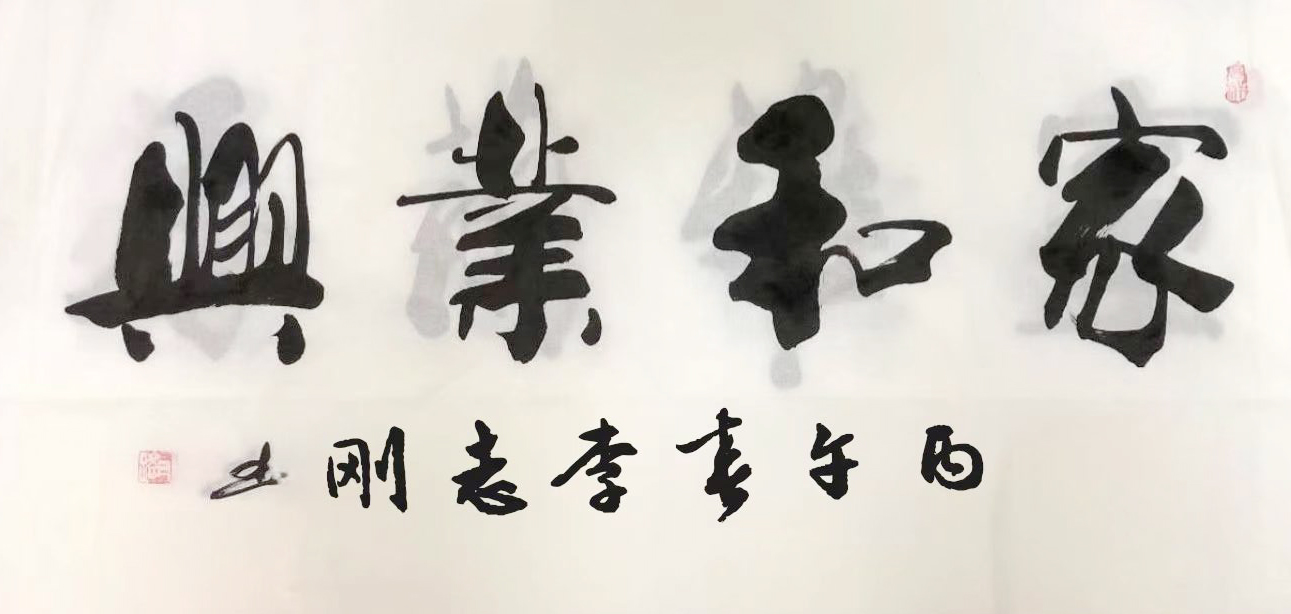 家和業興
丙午春李志刚书